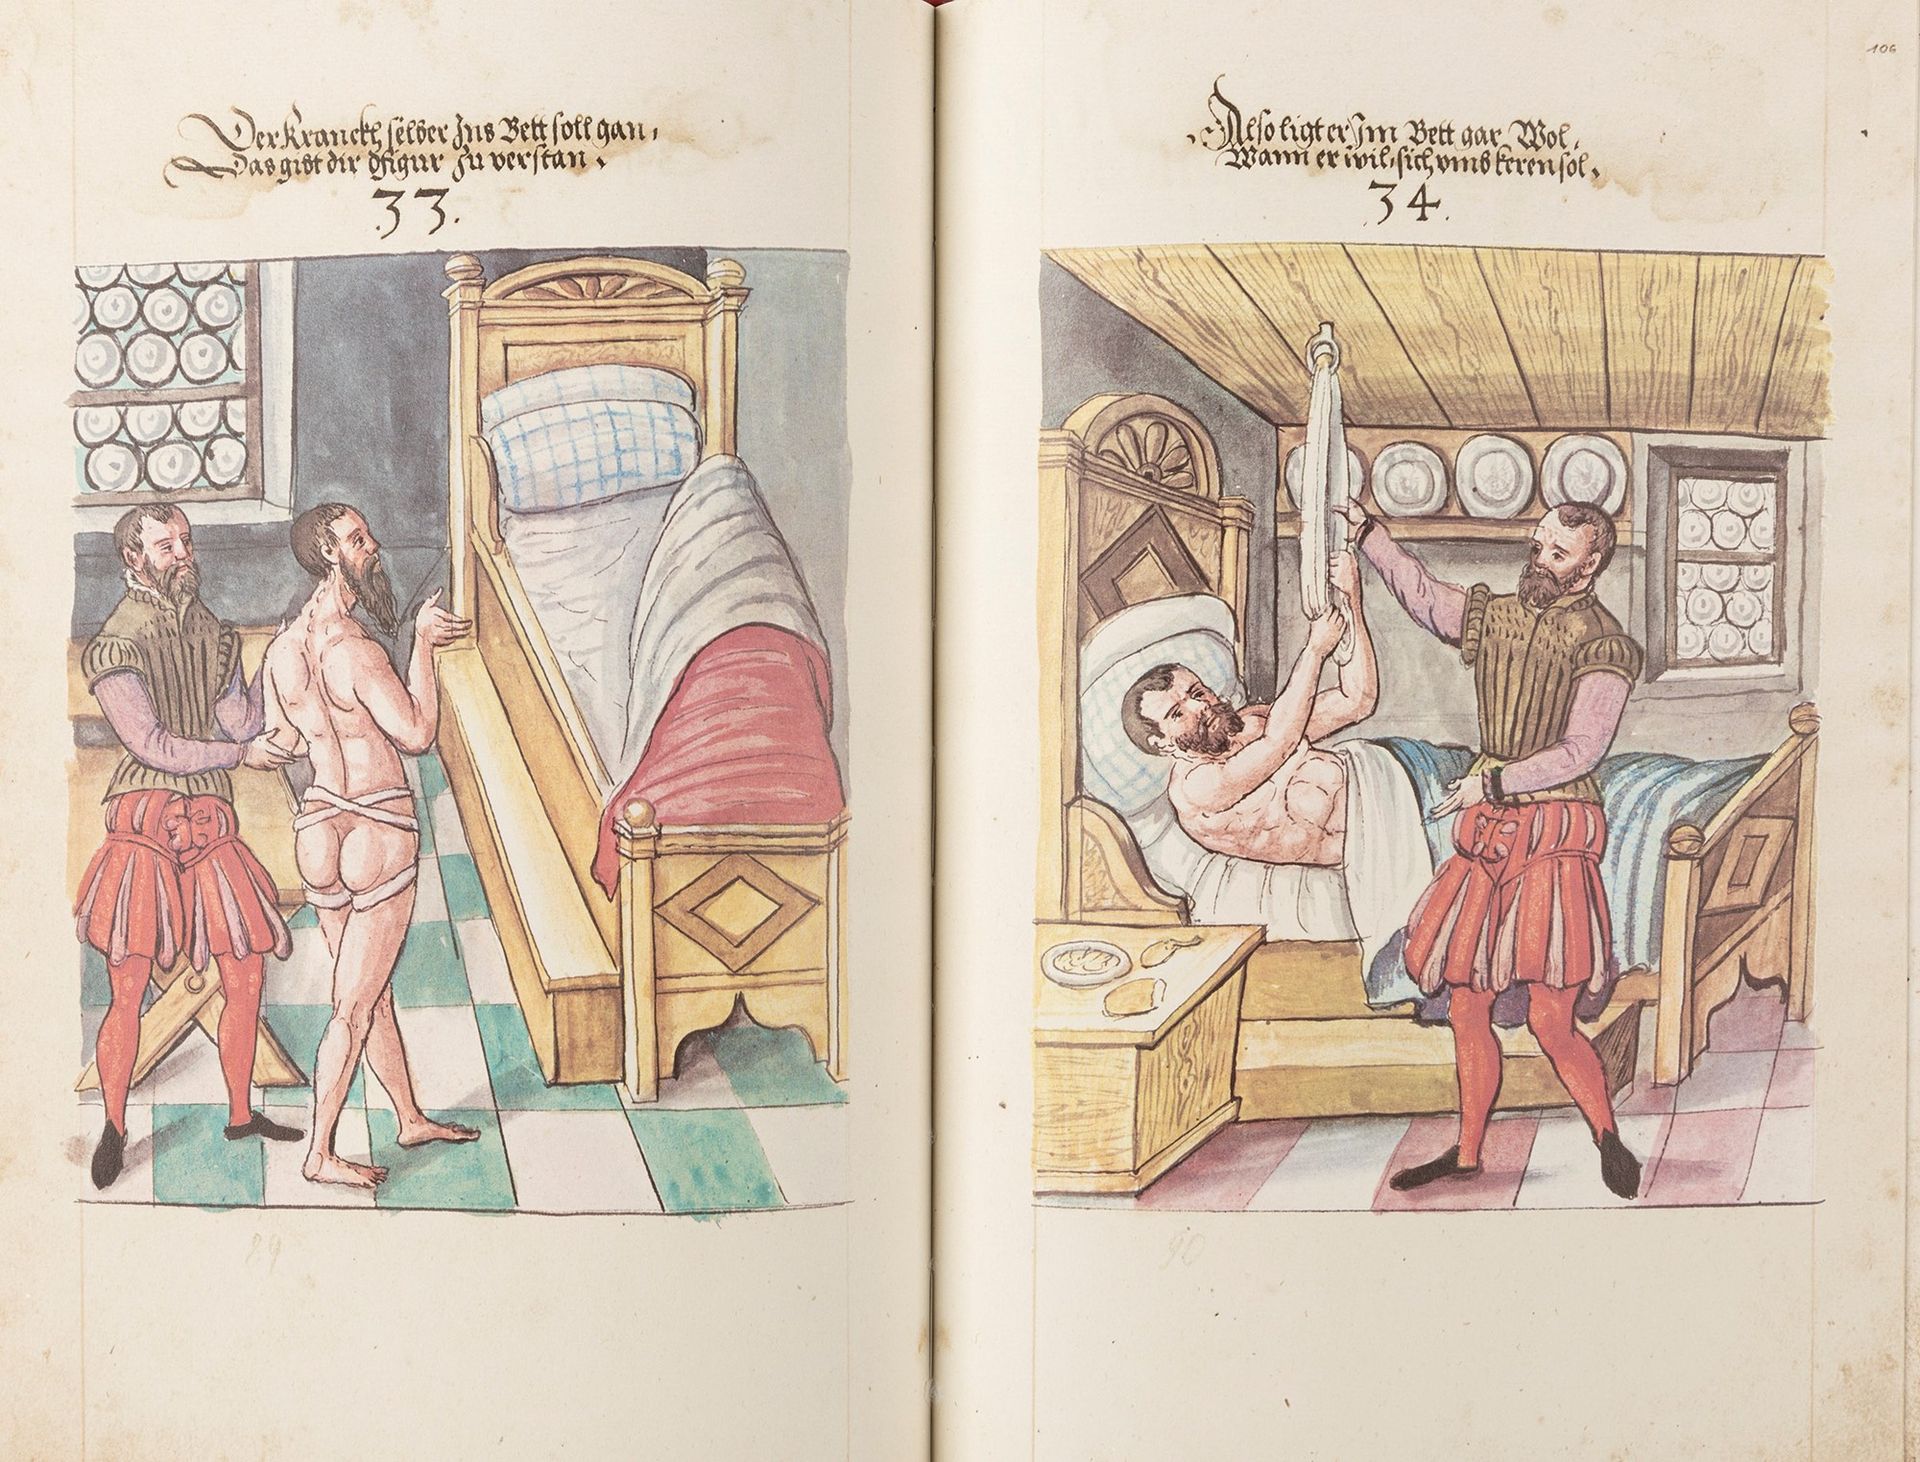 Der Kranckh selber Ins Bett soll gan,
Das gibt dir dfigur zu verstan.
.33.
89
106
Also ligt er Im Bett gar Wol,
Wann er wil sich umbkeren sol,
34.
90